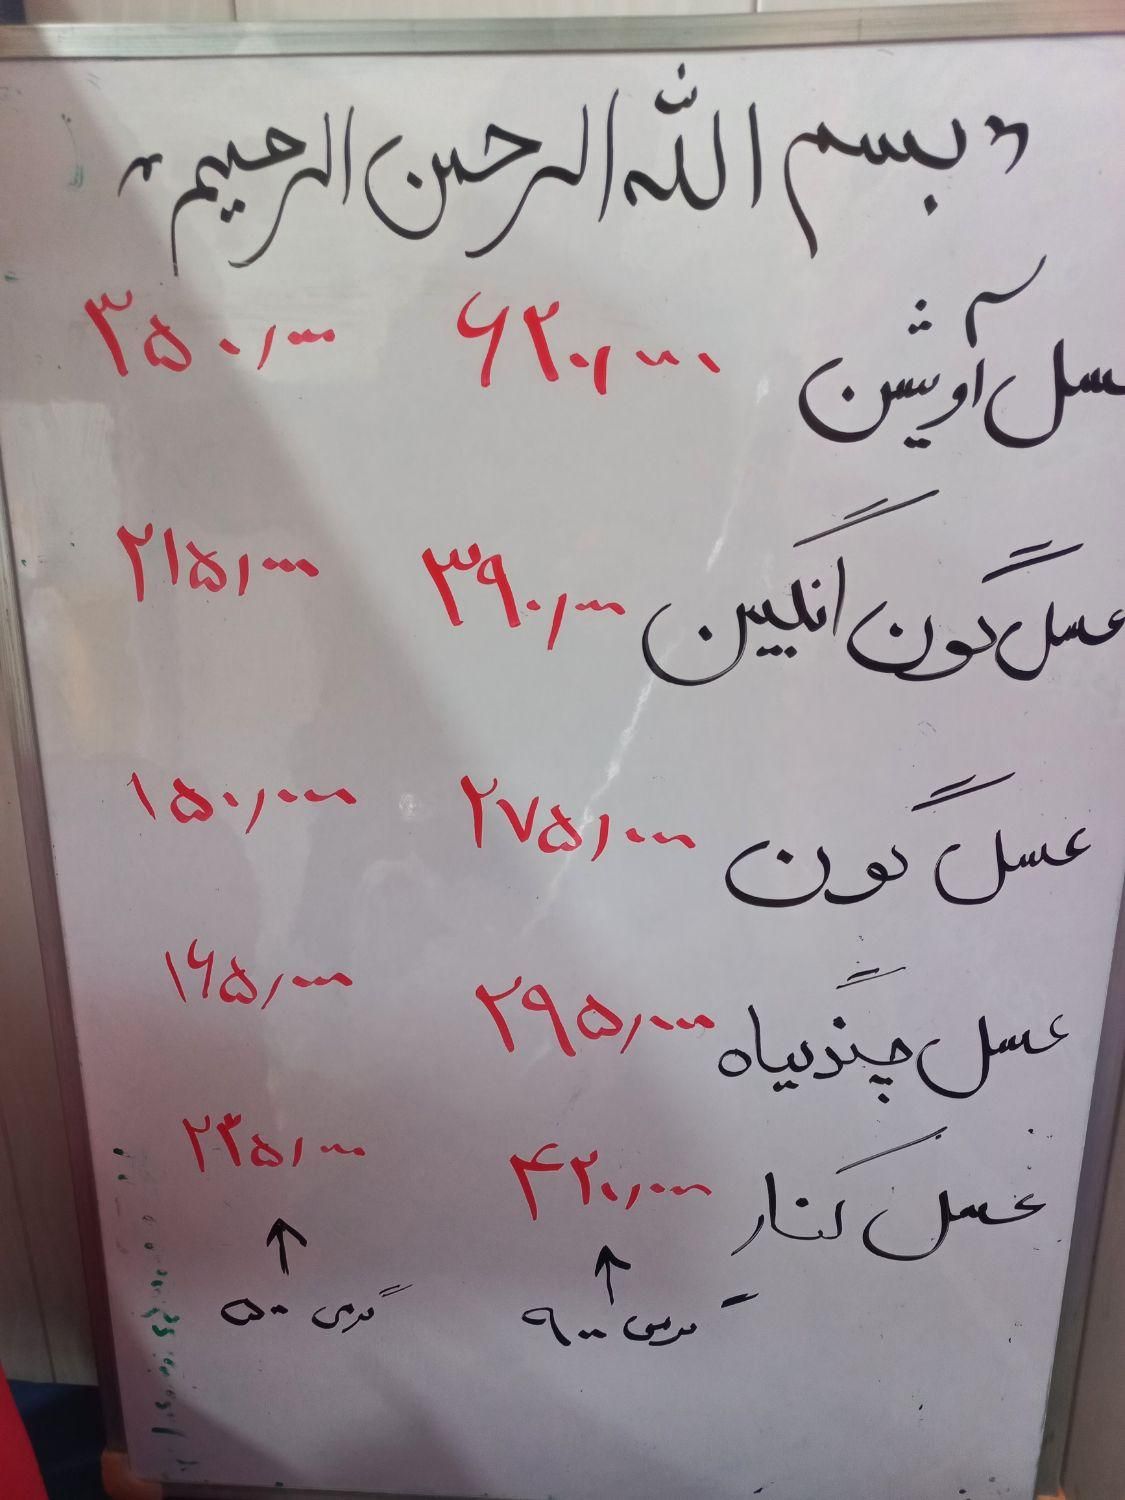 «بسم الله الرحمن الرحیم»
عسل آویشن ۶۲۰/۰۰۰ ۳۵۰/۰۰۰
عسل گون انگبین ۳۹۰/۰۰۰ ۲۱۵/۰۰۰
عسل گون ۲۷۵/۰۰۰ ۱۵۰/۰۰۰
عسل چندگیاه ۲۹۵/۰۰۰ ۱۶۵/۰۰۰
عسل کنار ۴۲۰/۰۰۰ ۲۳۵/۰۰۰
↑ ↑
۹۰۰ گرمی ۵۰۰ گرمی